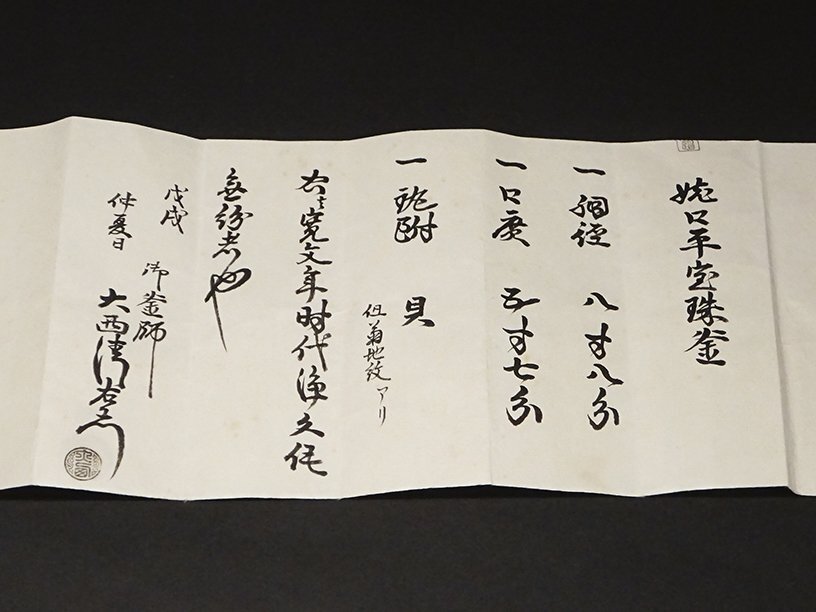 姥口平宝珠釜
一 胴径 八寸八分
一 口廣 五寸七分
一 鐶附 貝
但菊地紋アリ
右ハ寛文年時代浄久作
無紛者也
戊戌
仲夏日
御釜師
大西清右衛門